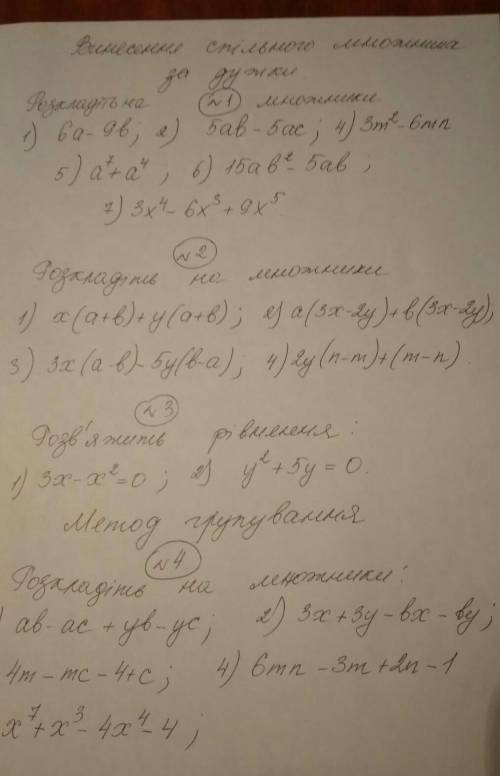 Винесення спільного множника
за дужки
Розкладіть на №1 множники
1) 6a - 9b; 2) 5ab - 5ac; 4) 3m² - 6mn
5) a⁷ + a⁴, 6) 15ab² - 5ab;
7) 3x⁴ - 6x³ + 9x⁵
№2
Розкладіть на множники
1) x(a+b) + y(a+b); 2) a(3x-2y) + b(3x-2y);
3) 3x(a-b) - 5y(b-a); 4) 2y(n-m) + (m-n).
№3
Розв'яжить рівняння:
1) 3x - x² = 0; 2) y² + 5y = 0.
Метод групування
№4
Розкладіть на множники:
) ab - ac + yb - yc; 2) 3x + 3y - bx - by;
4m - mc - 4 + c; 4) 6mn - 3m + 2n - 1
x⁷ + x³ - 4x⁴ - 4;